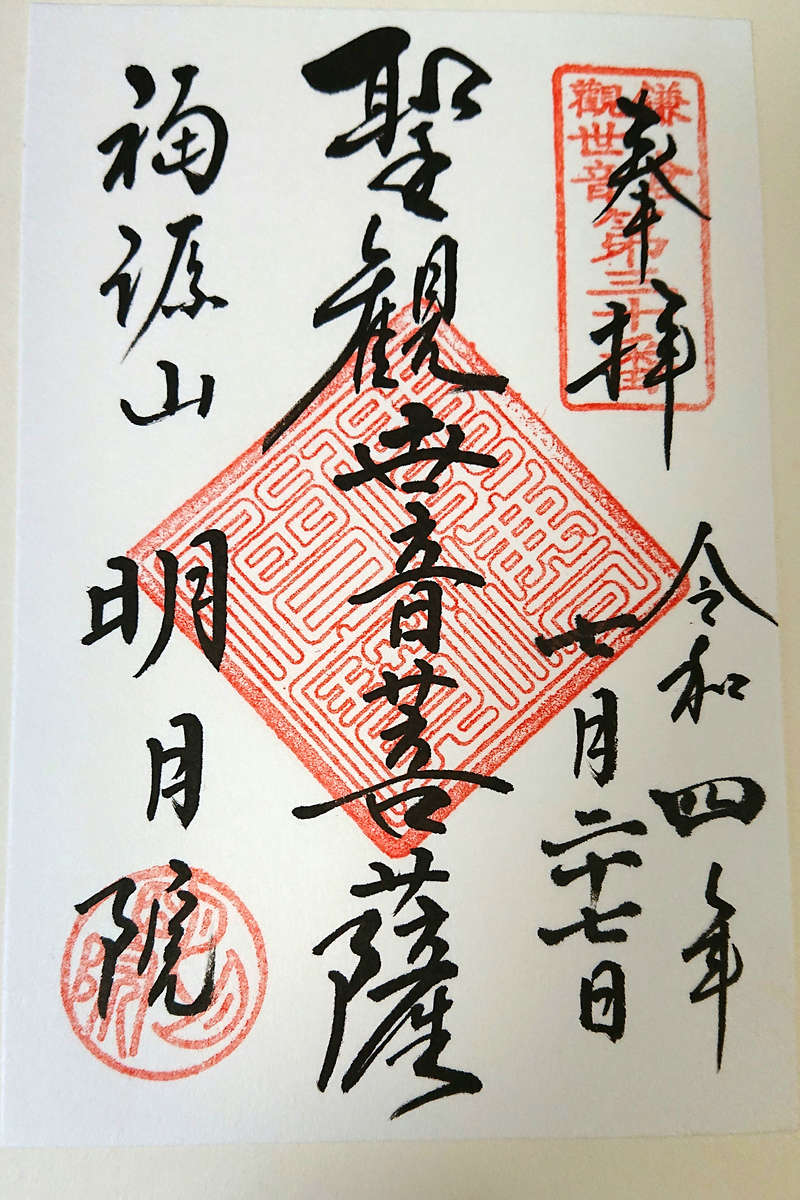 奉拝
鎌倉
觀世音第三十番
令和四年
七月二十七日
聖観世音菩薩
福源山
明月院